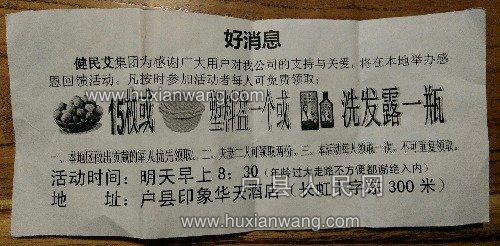 好消息
健民艾集团为感谢广大用户对我公司的支持与关爱，将在本地举办感
恩回蚀活动。凡按时参加活动者每人可免费领取：
15枚或 塑料盆一个或 洗发露一瓶
一、本地区做出贡献的军人优先领取。二、夫妻二人可领取两份。三、本活动每人领取一次，不可重复领取。
活动时间：明天早上8：30（年龄过大走路不方便都谢绝入内）
地 址：户县印象华天酒店（长虹十字东300米）
www.huxianwang.com
www.huxianwang.com
户县人民网
www.huxianwang.com